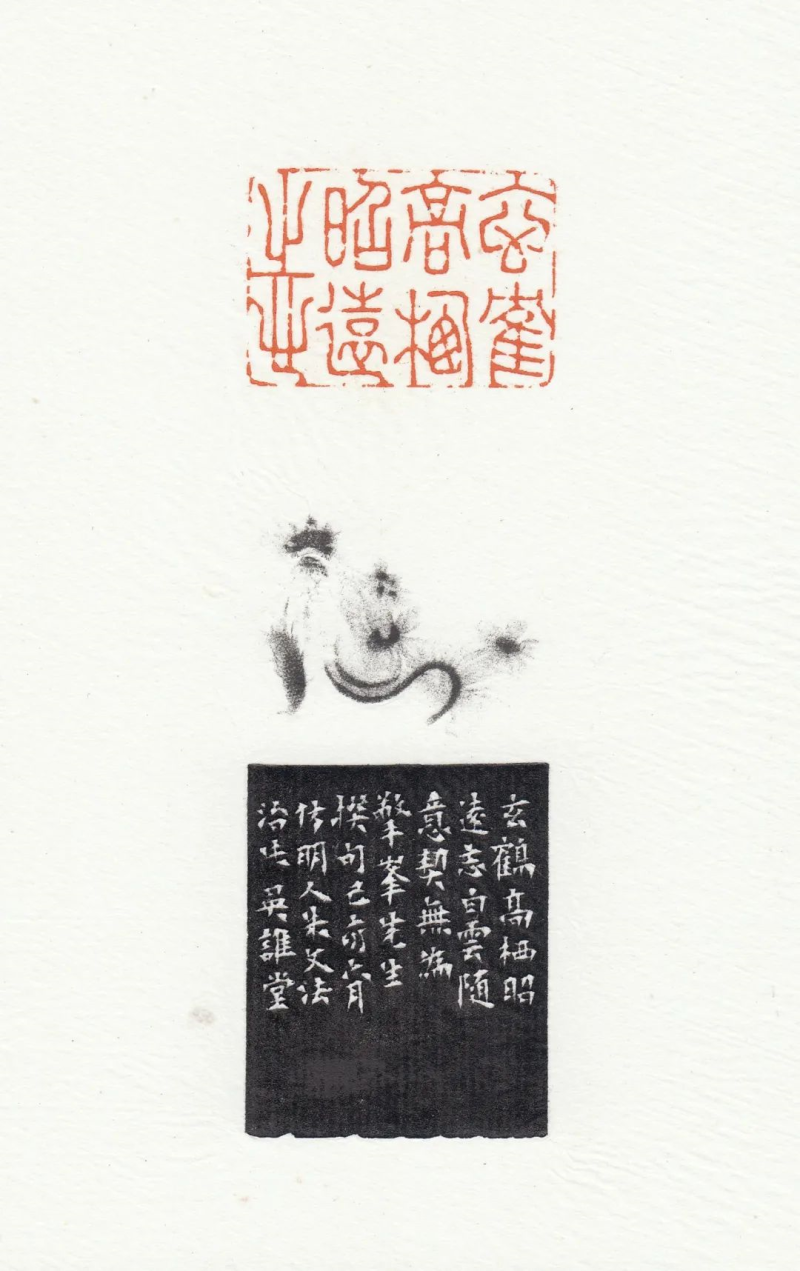 玄寉
高栖
昭遠
玄鶴高栖昭
遠志白雲隨
意契無為
擎峯先生
撰句己亥六月
仿明人朱文法
治 吳誰堂